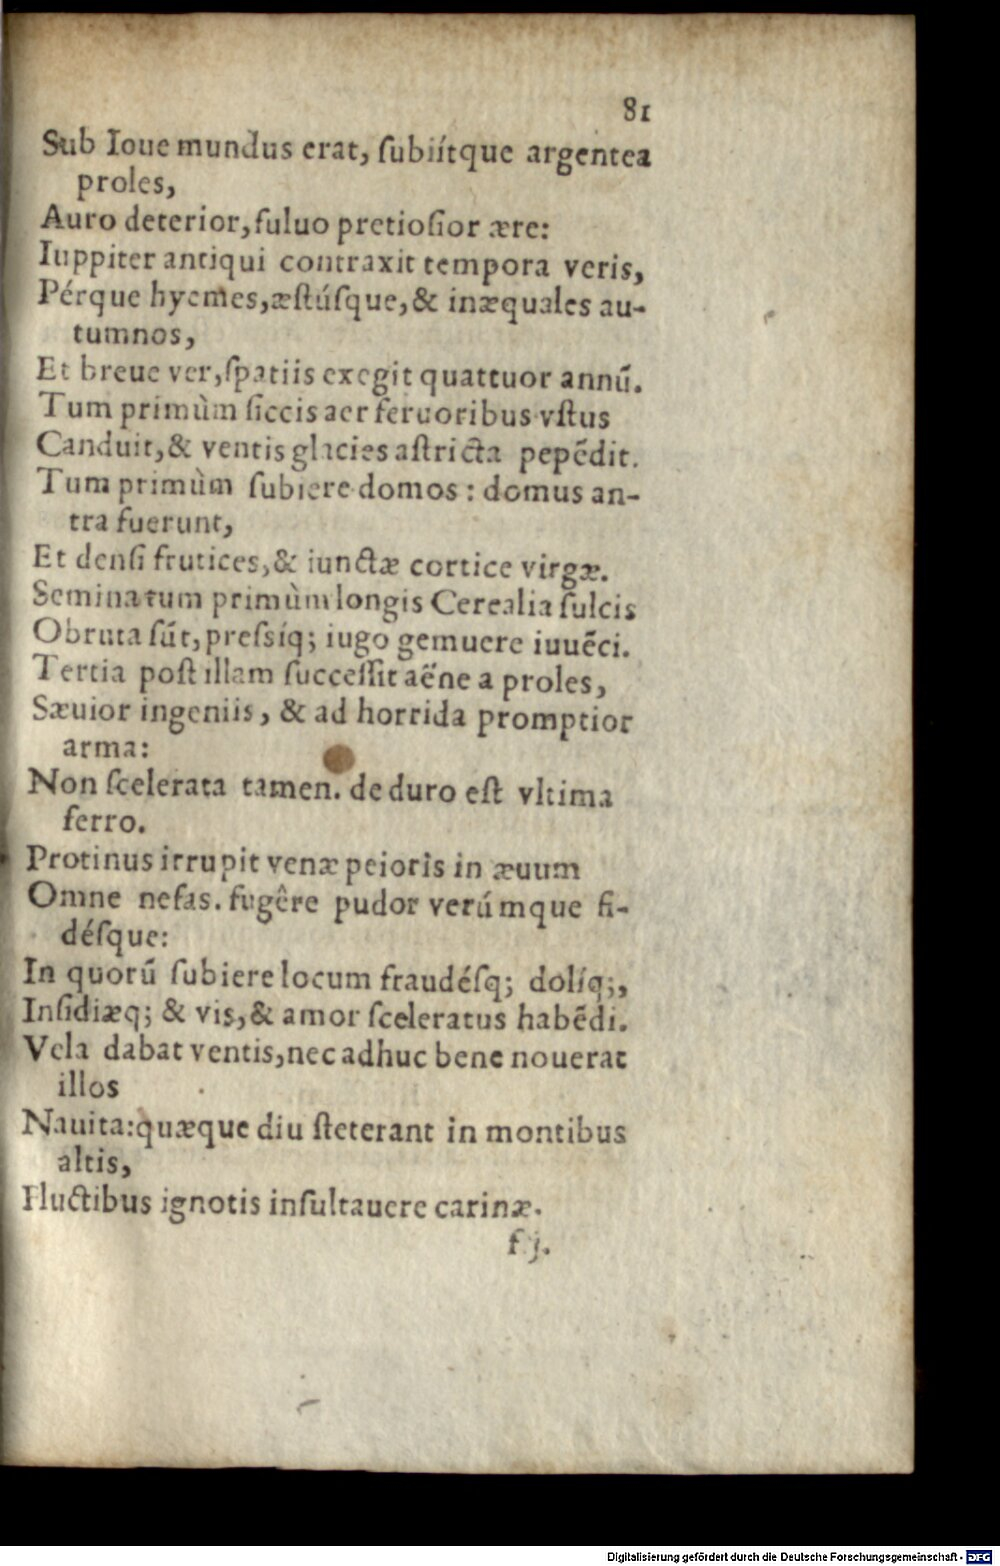 81
Sub Ioue mundus erat, ſubiítque argentea
proles,
Auro deterior, fuluo pretioſior ære:
Iuppiter antiqui contraxit tempora veris,
Pérque hyemes, æſtúſque, & inæquales au-
tumnos,
Et breue ver, ſpatiis exegit quattuor annũ.
Tum primùm ſiccis aer feruoribus vſtus
Canduit, & ventis glacies aſtricta pepẽdit.
Tum primùm ſubiere domos: domus an-
tra fuerunt,
Et denſi frutices, & iunctæ cortice virgæ.
Semina tum primùm longis Cerealia ſulcis
Obruta ſũt, preſsíq; iugo gemuere iuuẽci.
Tertia poſt illam ſucceſſit aëne a proles,
Sæuior ingeniis, & ad horrida promptior
arma:
Non ſcelerata tamen. de duro eſt vltima
ferro.
Protinus irrupit venæ peioris in æuum
Omne nefas. fugêre pudor verúmque fi-
déſque:
In quorũ ſubiere locum fraudéſq; dolíq;,
Inſidiæq; & vis, & amor ſceleratus habẽdi.
Vela dabat ventis, nec adhuc bene nouerat
illos
Nauita: quæque diu ſteterant in montibus
altis,
Fluctibus ignotis inſultauere carinæ.
f j.
Digitalisierung gefördert durch die Deutsche Forschungsgemeinschaft - DFG